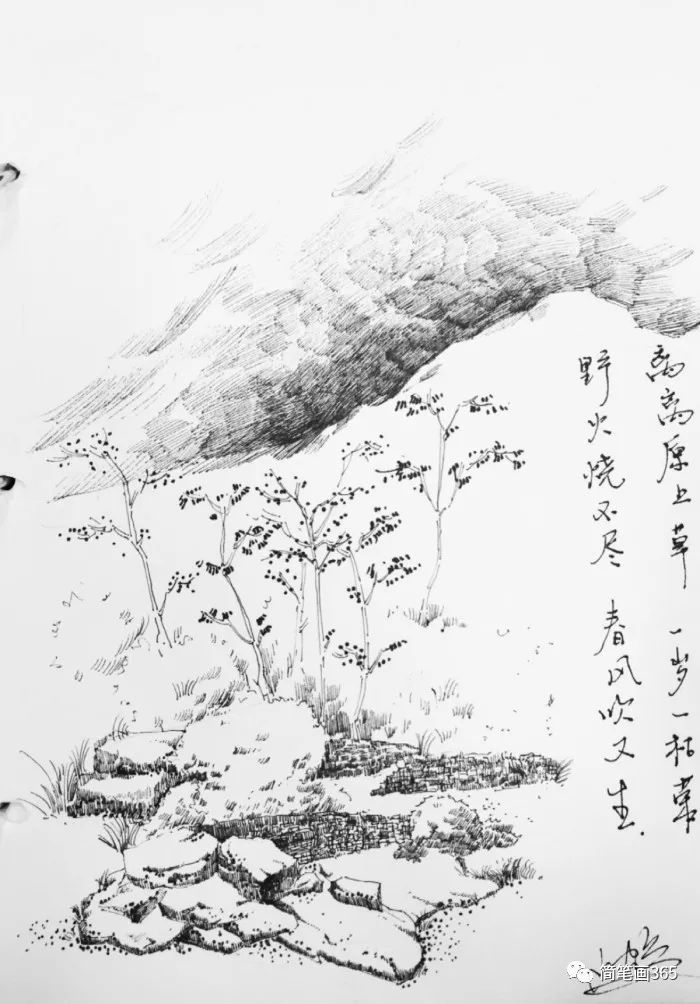 离离原上草 一岁一枯荣
野火烧不尽 春风吹又生.
简笔画365